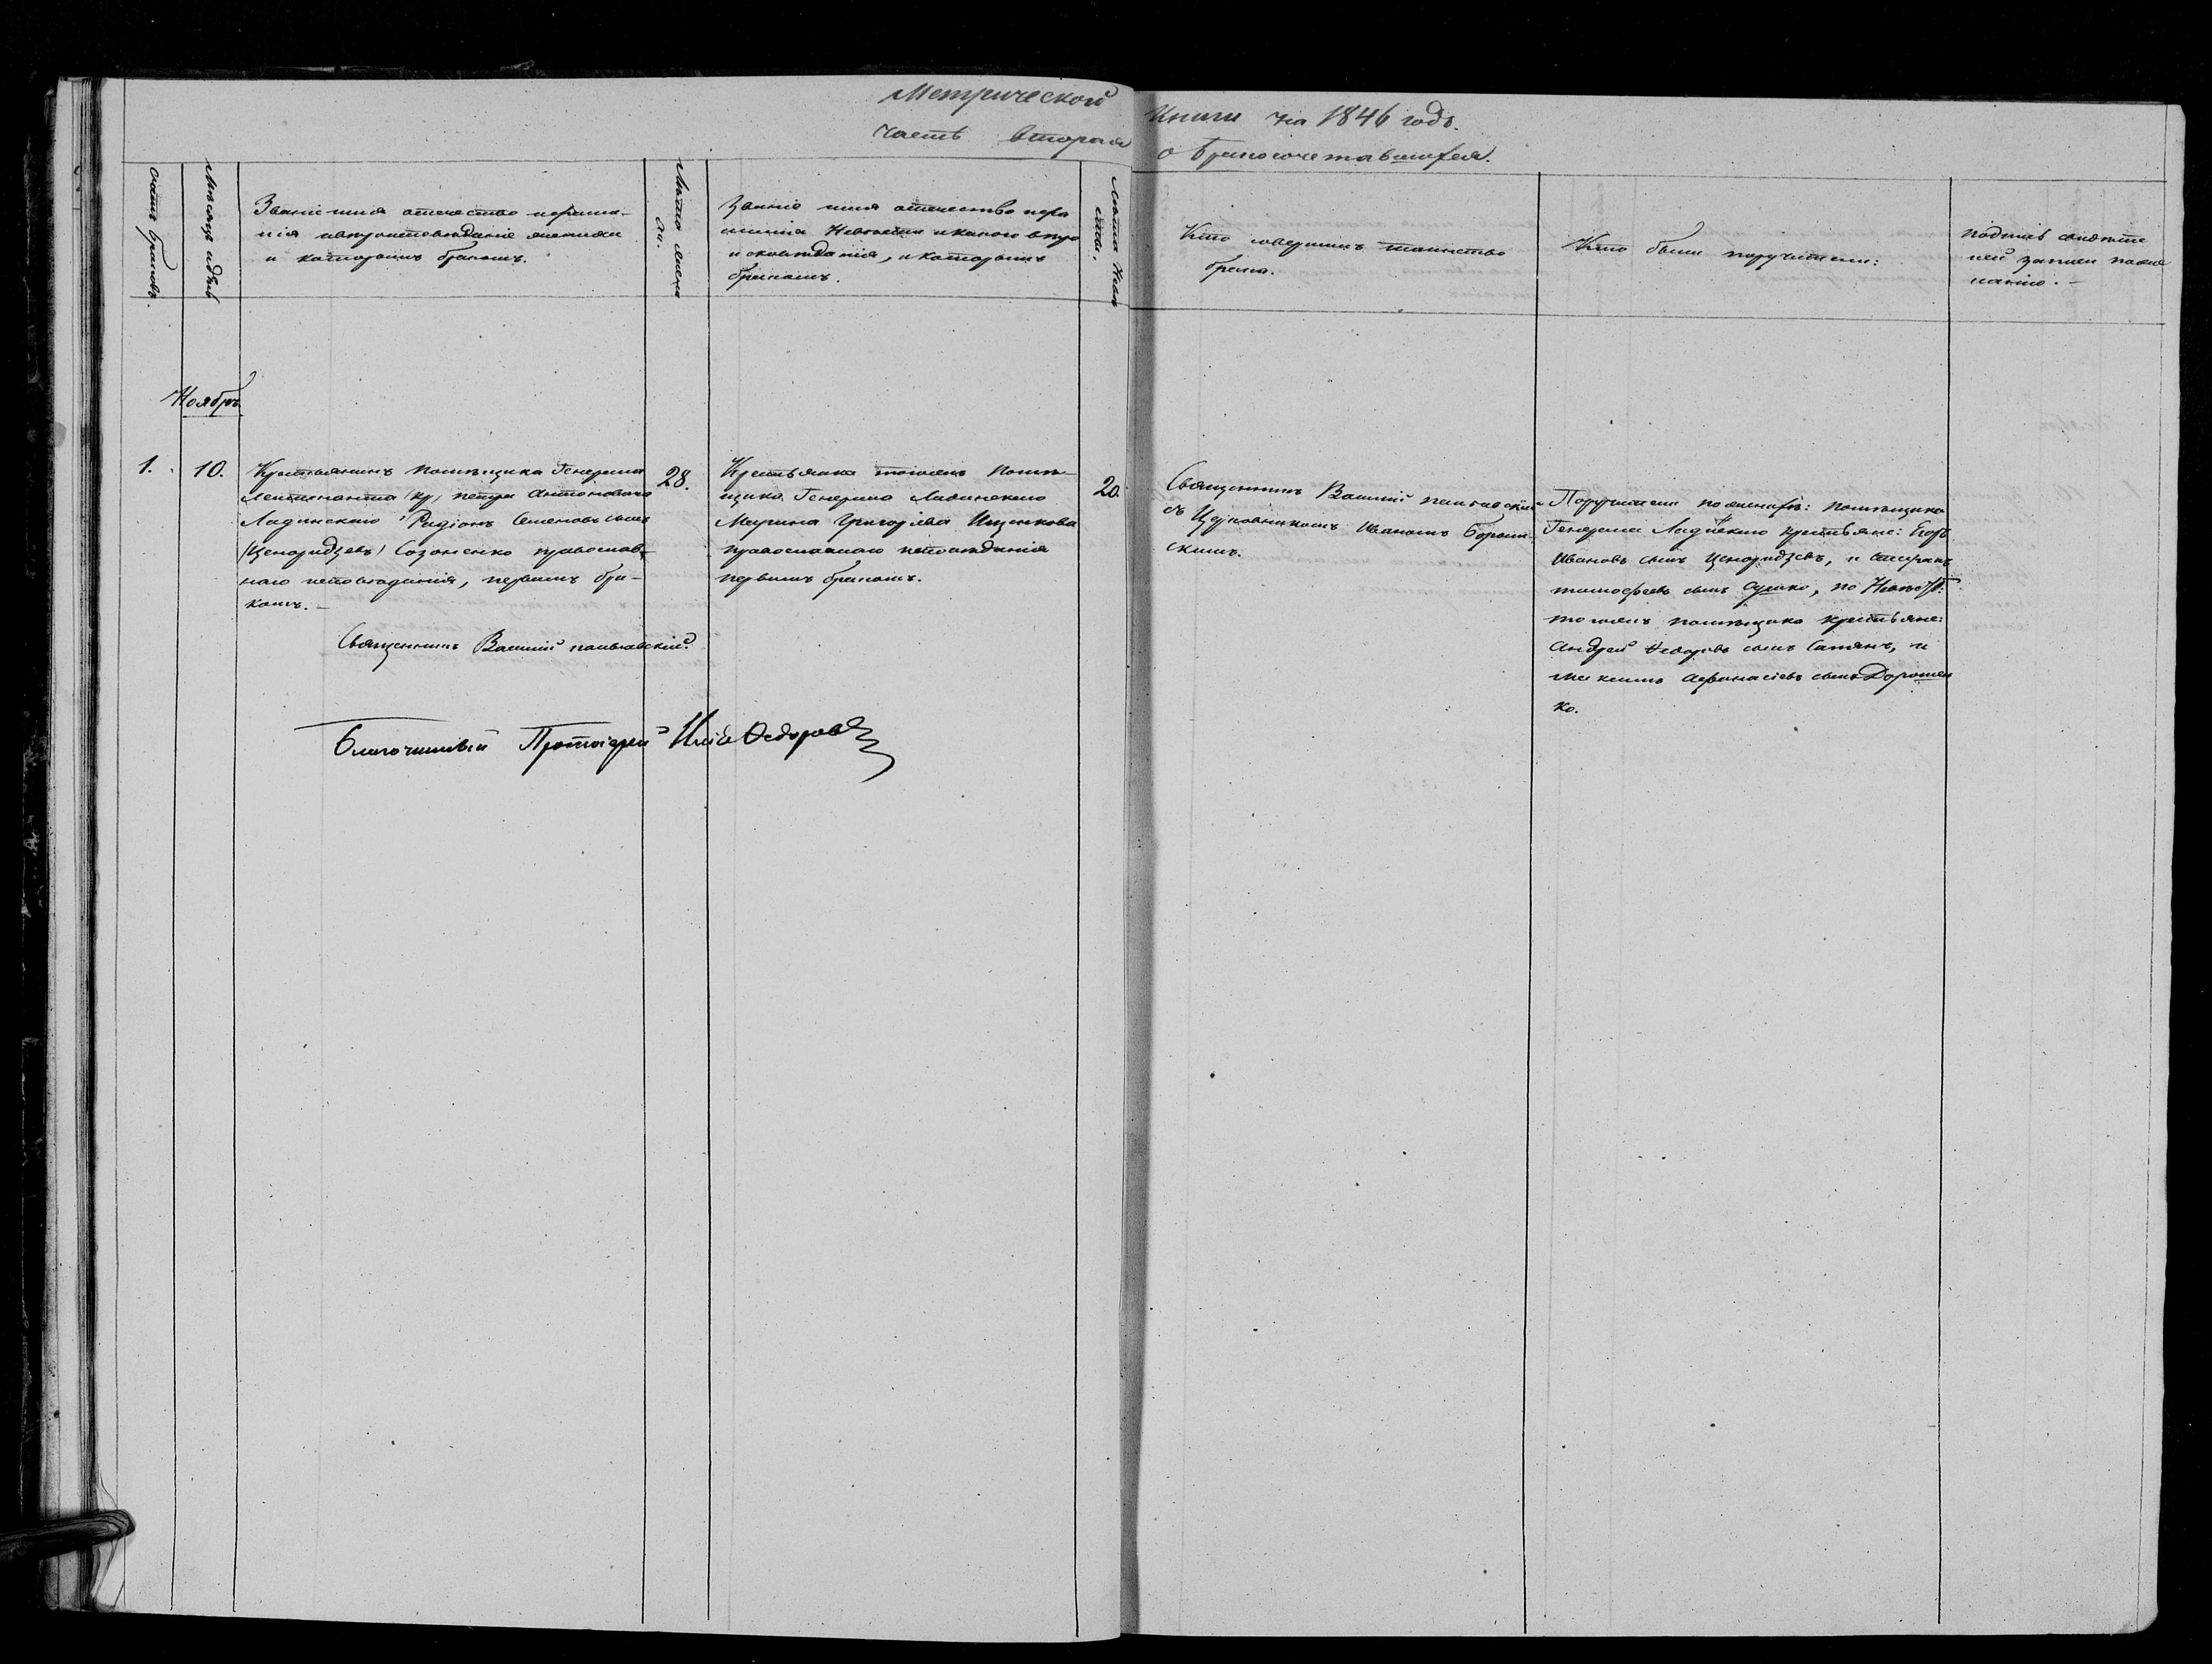 Метрической книги на 1846 годъ.
часть вторая о бракосочетавшихся.
счетъ браковъ.
Мѣсяцъ и день
Званіе имя отечество
и которымъ бракомъ.
Лѣта жениха.
Званіе имя отечество
Невѣсты и какого
исповѣданія, и которымъ
бракомъ.
Лѣта Невѣсты.
Кто совершилъ таинство
брака.
Кто были поручители:
Подпись свидѣте
лей записи
Ноябрь
1.
10.
Крестьянинъ помѣщика Генерала
Лейтенанта Петра Антоновича
Ладинскаго Радіонъ Семеновъ сынъ
Созоненко православ-
наго исповѣданія, первымъ бра-
комъ.
Священникъ Василій
28.
Крестьянка тогожъ помѣ-
щика Генерала Ладинскаго
Марина Григоріева Ищенкова
православнаго исповѣданія
первымъ бракомъ.
20.
Священникъ Василій
съ Церковникомъ Иваномъ
Поручители по женихѣ: помѣщика
Генерала Ладинскаго крестьяне: Егоръ
Ивановъ сынъ и
сынъ Сушко, по Невѣстѣ:
тогожъ помѣщика крестьяне:
Андрей Ѳедоровъ сынъ и
Максимъ Афанасіевъ сынъ Дорошен
ко.
Благочинный Протоіерей Илія Ѳедоровъ